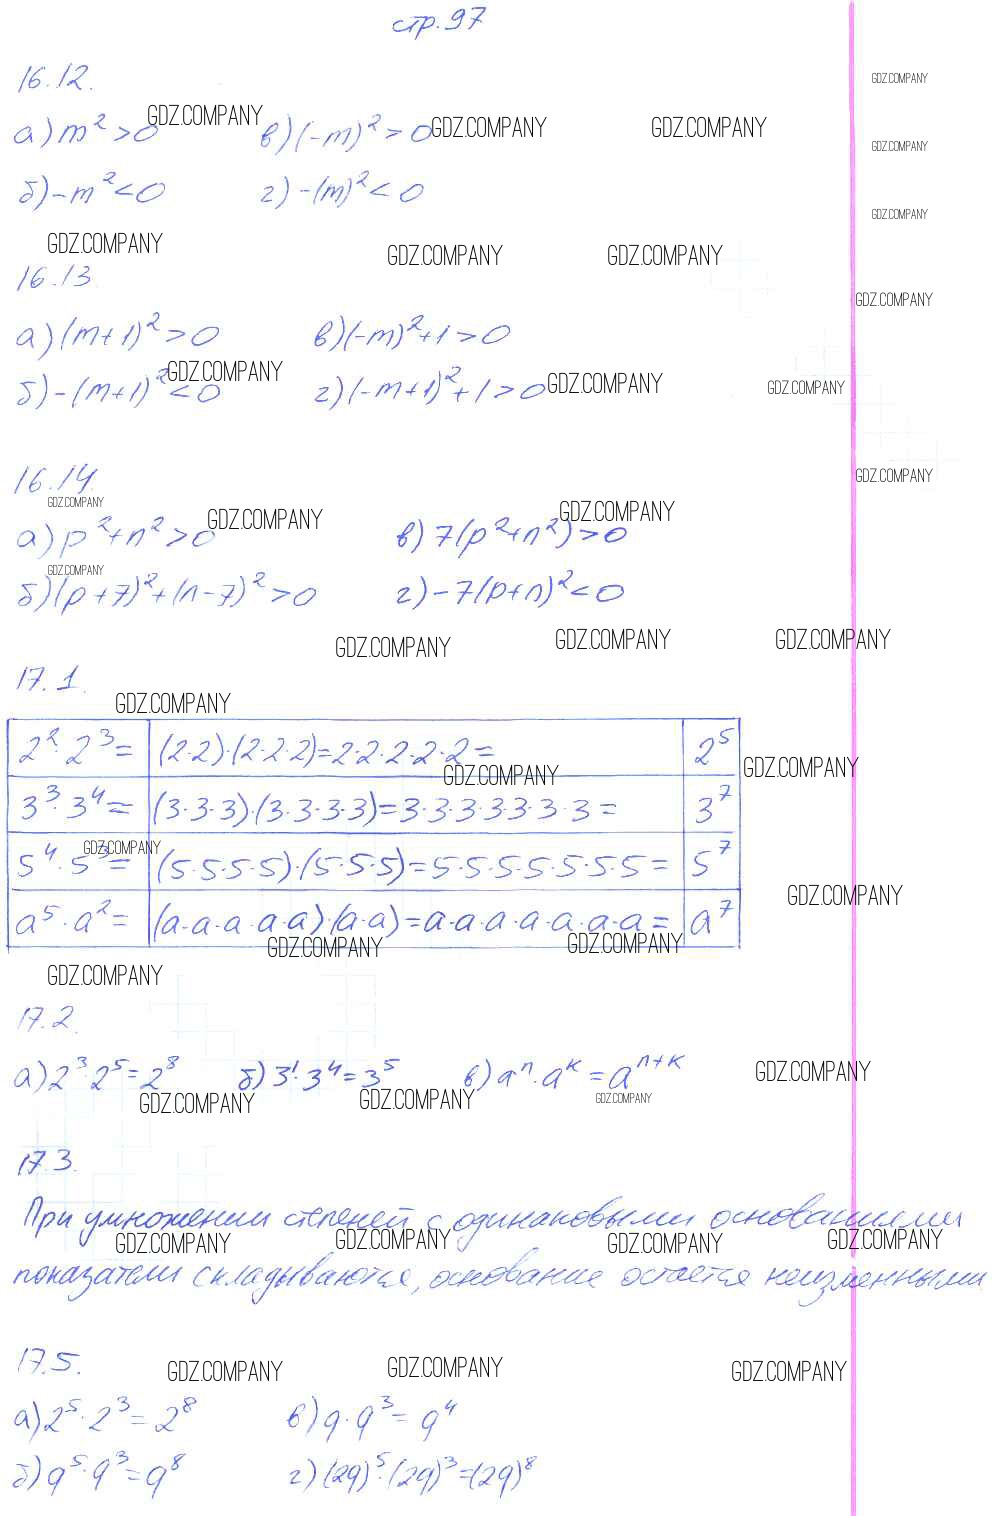 стр. 97
16.12.
а) m² > 0 в) (-m)² > 0
б) -m² < 0 г) -(m)² < 0
16.13.
а) (m+1)² > 0 в) (-m)²+1 > 0
б) -(m+1)² < 0 г) (-m+1)²+1 > 0
16.14.
а) p²+n² > 0 в) 7(p²+n²) > 0
б) (p+7)²+(n-7)² > 0 г) -7(p+n)² < 0
17.1.
2²·2³= (2·2)·(2·2·2)=2·2·2·2·2= 2⁵
3³·3⁴= (3·3·3)·(3·3·3·3)=3·3·3·3·3·3·3= 3⁷
5⁴·5³= (5·5·5·5)·(5·5·5)=5·5·5·5·5·5·5= 5⁷
a⁵·a²= (a·a·a·a·a)·(a·a)=a·a·a·a·a·a·a= a⁷
17.2.
а) 2³·2⁵=2⁸ б) 3¹·3⁴=3⁵ в) aⁿ·aᵏ=aⁿ⁺ᵏ
17.3.
При умножении степеней с одинаковыми основаниями
показатели складываются, основание остается неизменным
17.5.
а) 2⁵·2³=2⁸ в) q·q³=q⁴
б) q⁵·q³=q⁸ г) (2q)⁵·(2q)³=(2q)⁸
GDZ.COMPANY